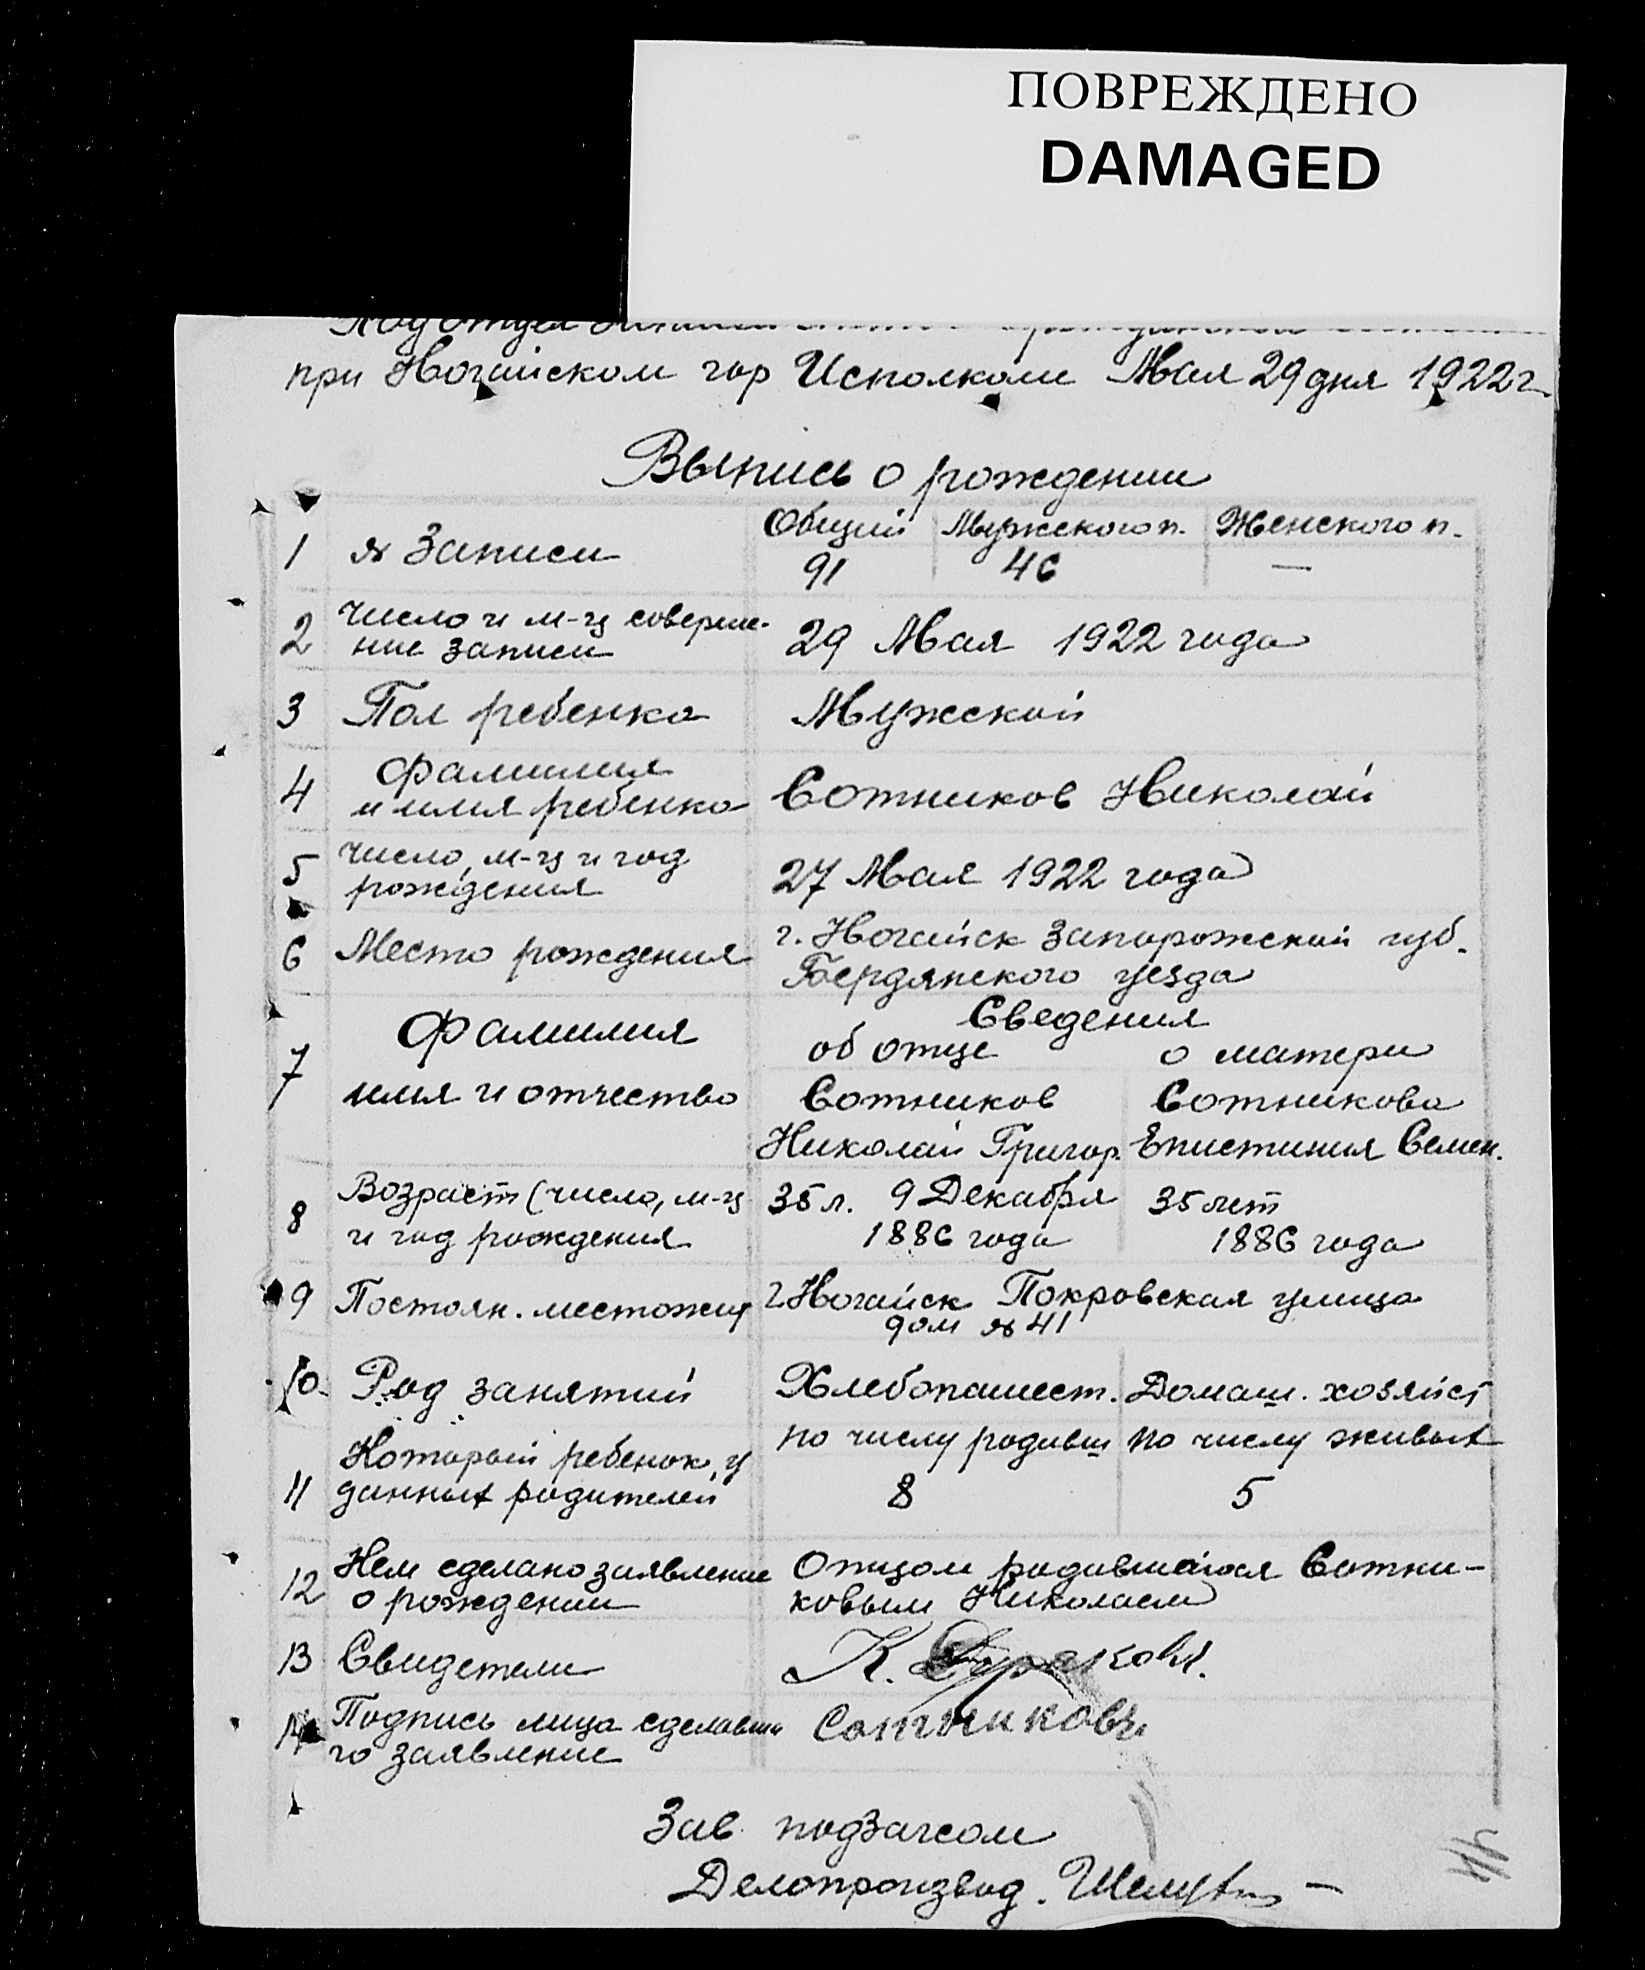 ПОВРЕЖДЕНО
DAMAGED
Подотдел
при Ногайском гор Исполкоме Мая 29 дня 1922 г.
Выпись о рождении
Общий Мужского п. Женского п.
1 № Записи 91 46 —
2 Число и м-ц соверше-
ние записи 29 Мая 1922 года
3 Пол ребенка Мужской
4 Фамилия
и имя ребенка Сотников Николай
5 Число, м-ц и год
рождения 27 Мая 1922 года
6 Место рождения г. Ногайск Запорожской губ.
Бердянского уезда
7 Фамилия
имя и отчество
Сведения
об отце о матери
Сотников Сотникова
Николай Григор. Епистиния Семен.
8 Возраст (число, м-ц
и год рождения
35 л. 9 Декабря 35 лет
1886 года 1886 года
9 Постоян. местожит г. Ногайск Покровская улица
дом № 41
10 Род занятий Хлебопашест. Домаш. хозяйст
11 Который ребенок у
данных родителей
по числу родивш по числу живых
8 5
12 Кем сделано заявление
о рождении
Отцом родившагося Сотни-
ковым Николаем
13 Свидетели К.
14 Подпись лица сделавш
го заявление Сотниковъ
Зав подзагсом
Делопроизвод.